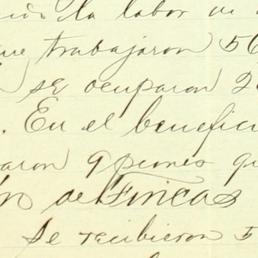 la labor de
que trabajaron 56
se ocuparon 2
. En el benefici
aron 9 peones qu
de Fincas
Se recibieron 5